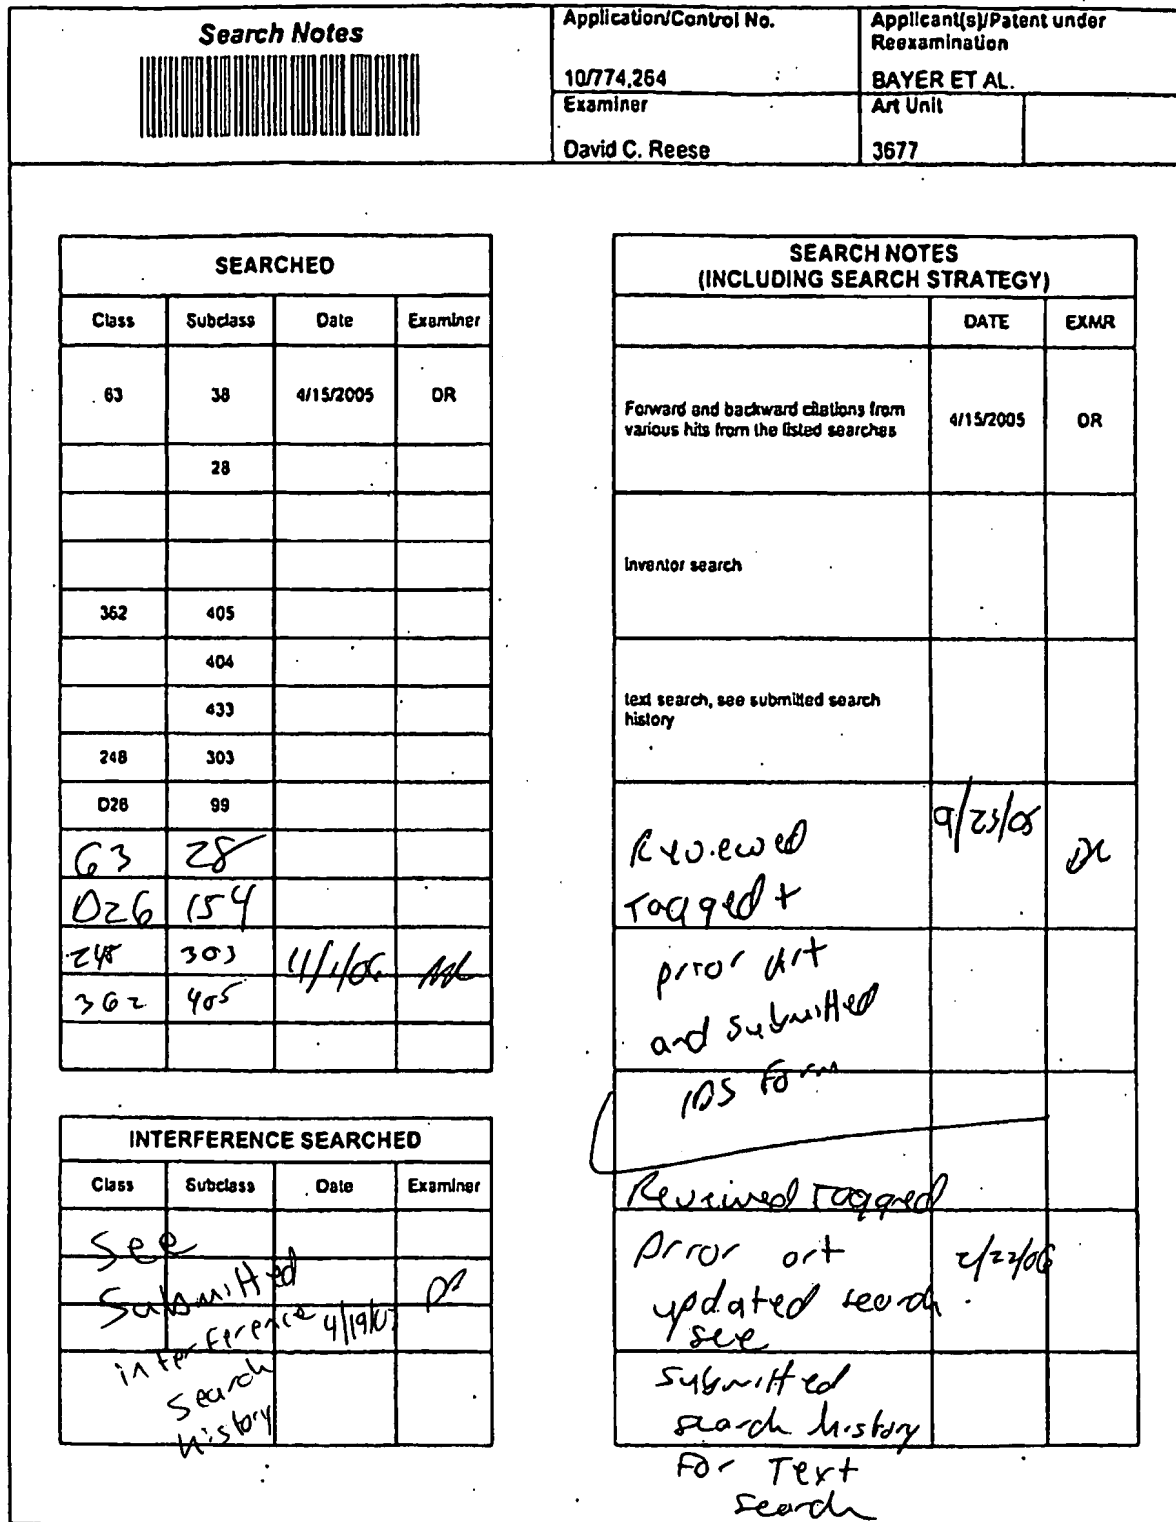 Search Notes
Application/Control No.
10/774,264
Applicant(s)/Patent under
Reexamination
BAYER ET AL.
Examiner
David C. Reese
Art Unit
3677
SEARCHED
Class Subclass Date Examiner
63 38 4/15/2005 DR
28
362 405
404
433
248 303
D26 99
63 28
D26 154
248 303
362 405
INTERFERENCE SEARCHED
Class Subclass Date Examiner
See
Submitted
interference
search
history
SEARCH NOTES
(INCLUDING SEARCH STRATEGY)
DATE EXMR
Forward and backward citations from
various hits from the listed searches
4/15/2005 DR
inventor search
text search, see submitted search
history
Reviewed
Tagged +
prior art
and submitted
IDS Form
Tagged
prior art 2/22/06
updated search
see
submitted
search history
For Text
search